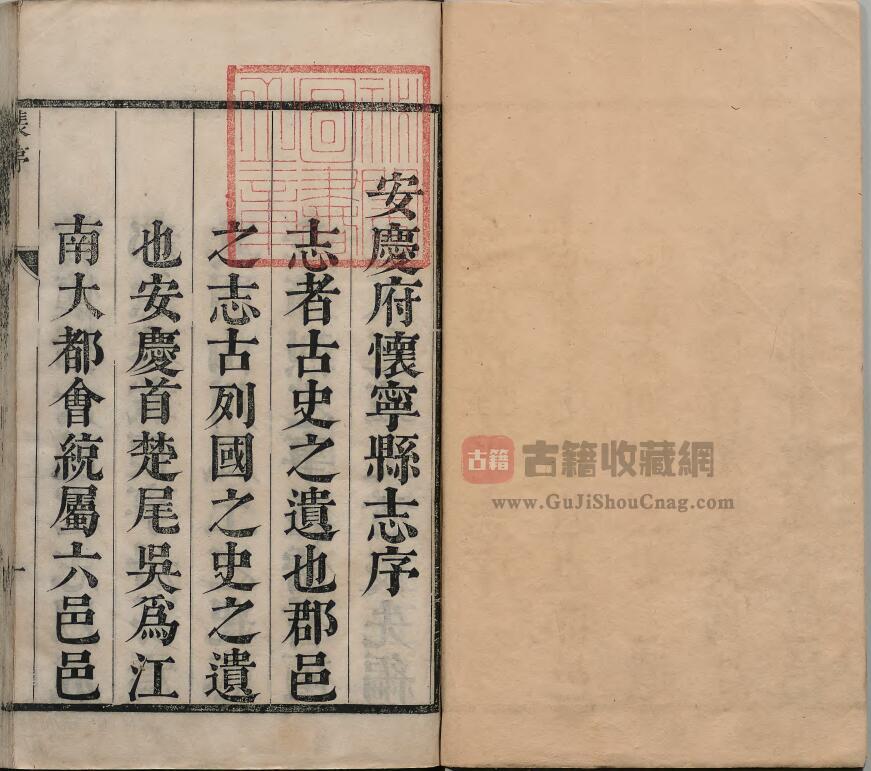 安慶府懷寧縣志序
志者古史之遺也郡邑
之志古列國之史之遺
也安慶首楚尾吳爲江
南大都會統屬六邑邑
古籍
古籍收藏網
www.GuJiShouCnag.com